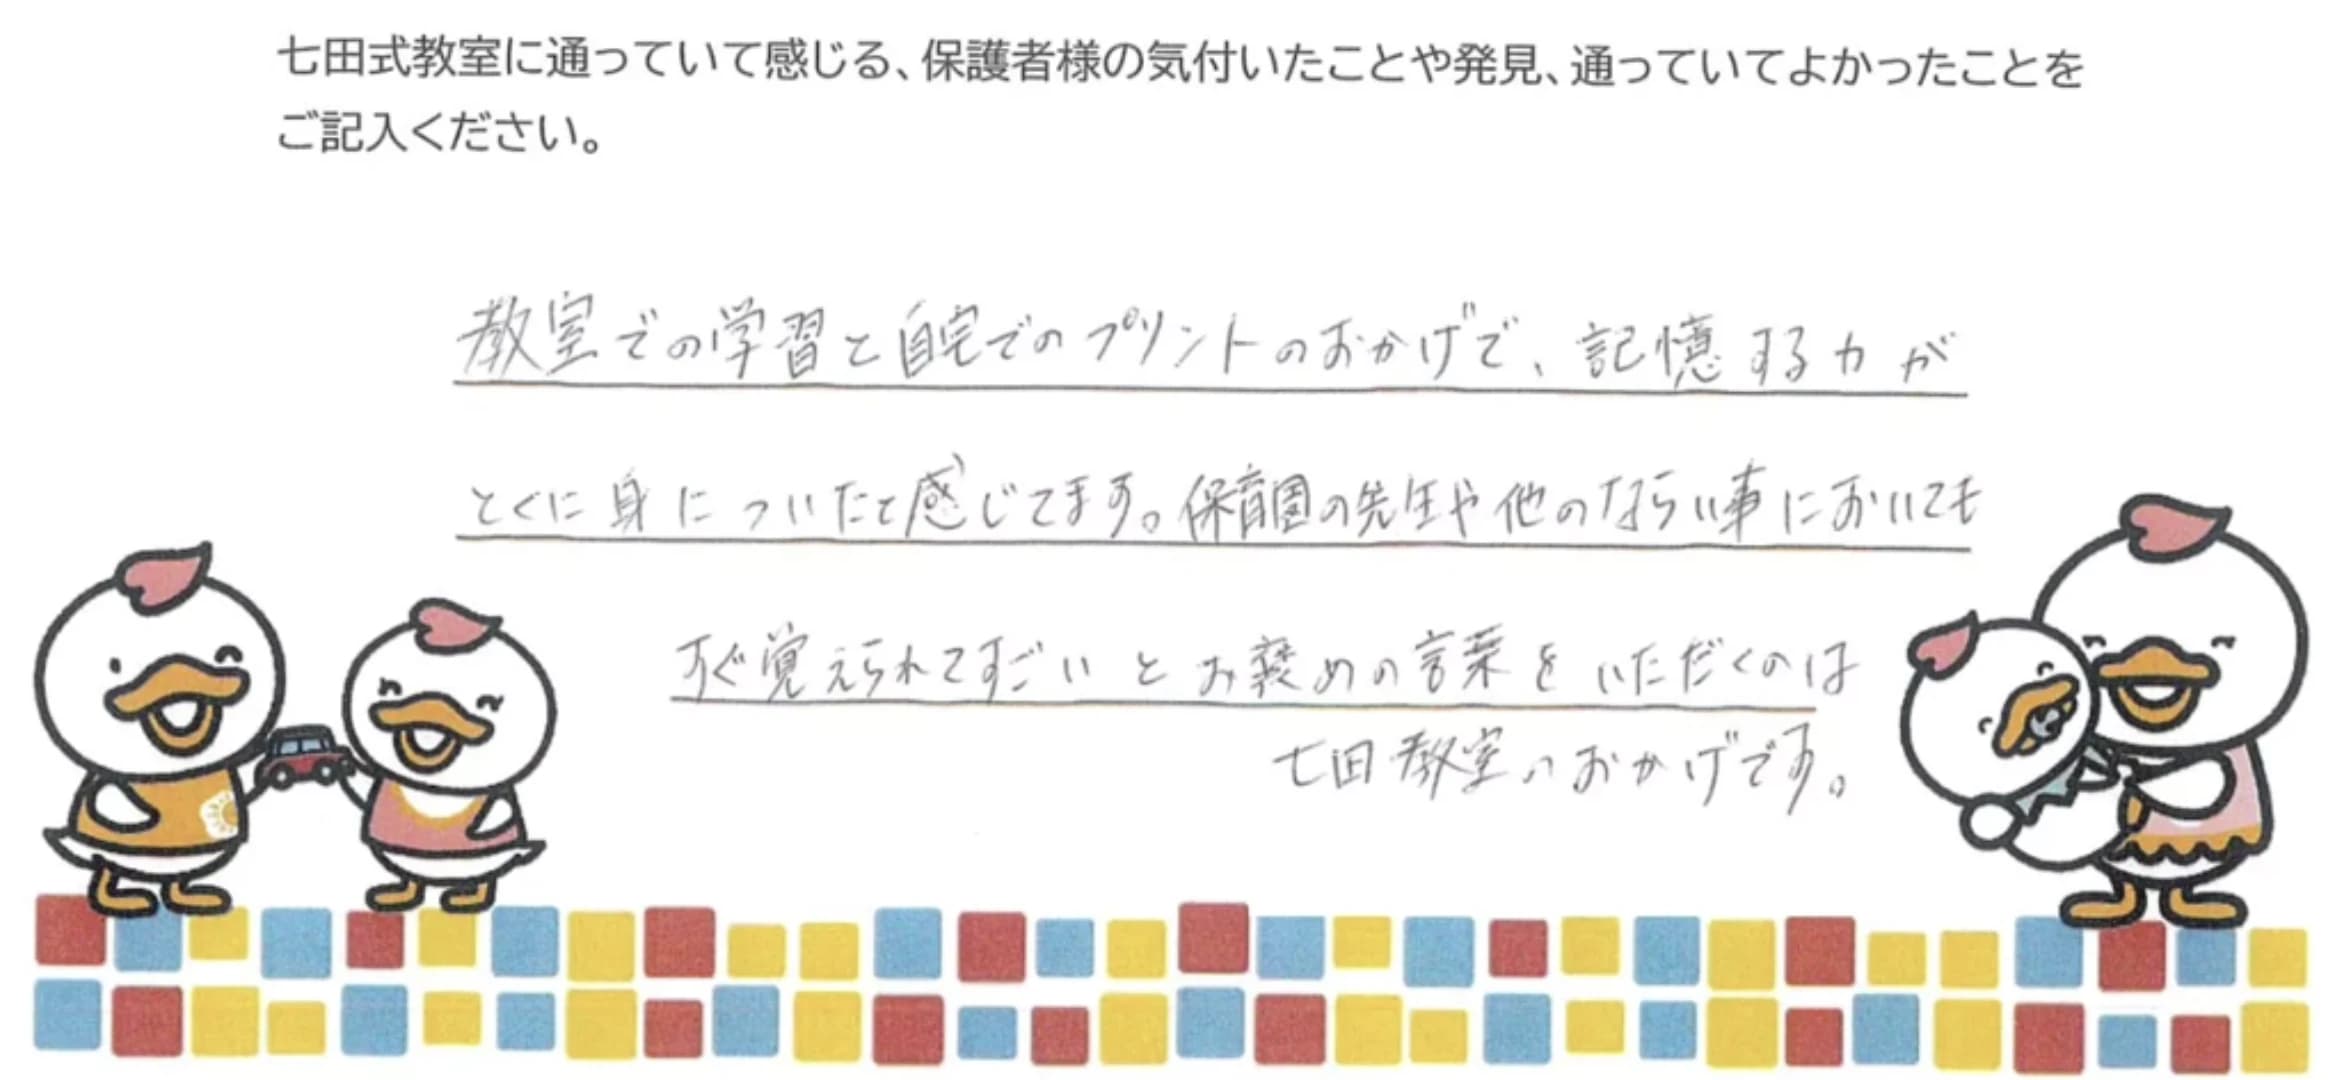 七田式教室に通っていて感じる、保護者様の気付いたことや発見、通っていてよかったことを
ご記入ください。
教室での学習と自宅でのプリントのおかげで、記憶する力が
とくに身についたと感じてます。保育園の先生や他のならい事においても
すぐ覚えられてすごいとお褒めの言葉をいただくのは
七田教室のおかげです。